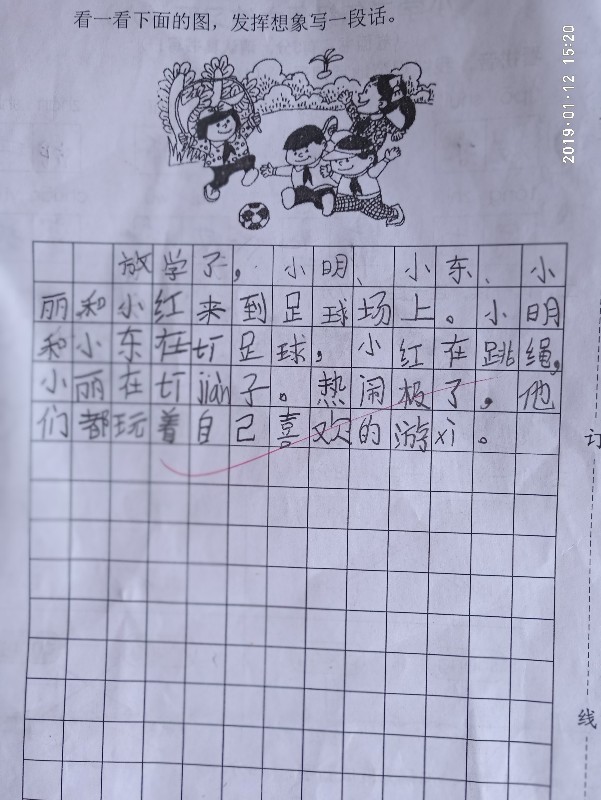 看一看下面的图，发挥想象写一段话。
2019·01·12 15:20
放学了，小明、小东、小
丽和小红来到足球场上。小明
和小东在切足球，小红在跳绳，
小丽在切jiàn子。热闹极了，他
们都玩着自己喜欢的游xì。
订
线